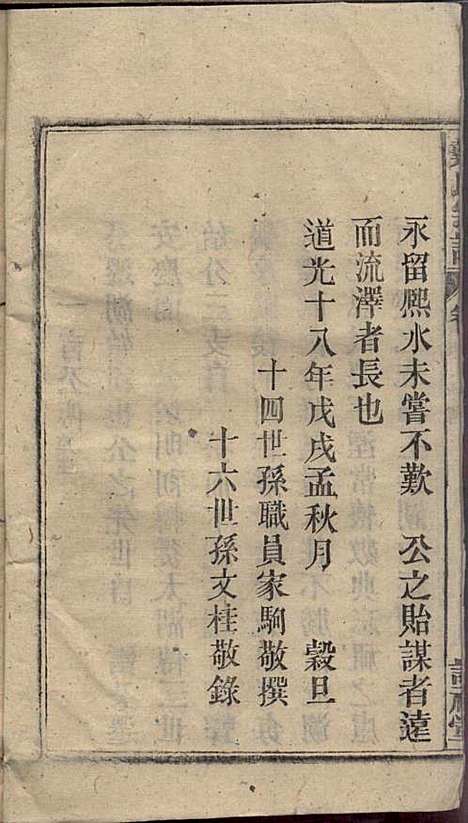 永留熈水未嘗不歎　公之貽謀者遠
而流澤者長也
道光十八年戊戌孟秋月　榖旦
十四世孫職員家駒敬撰
十六世孫文桂敬錄